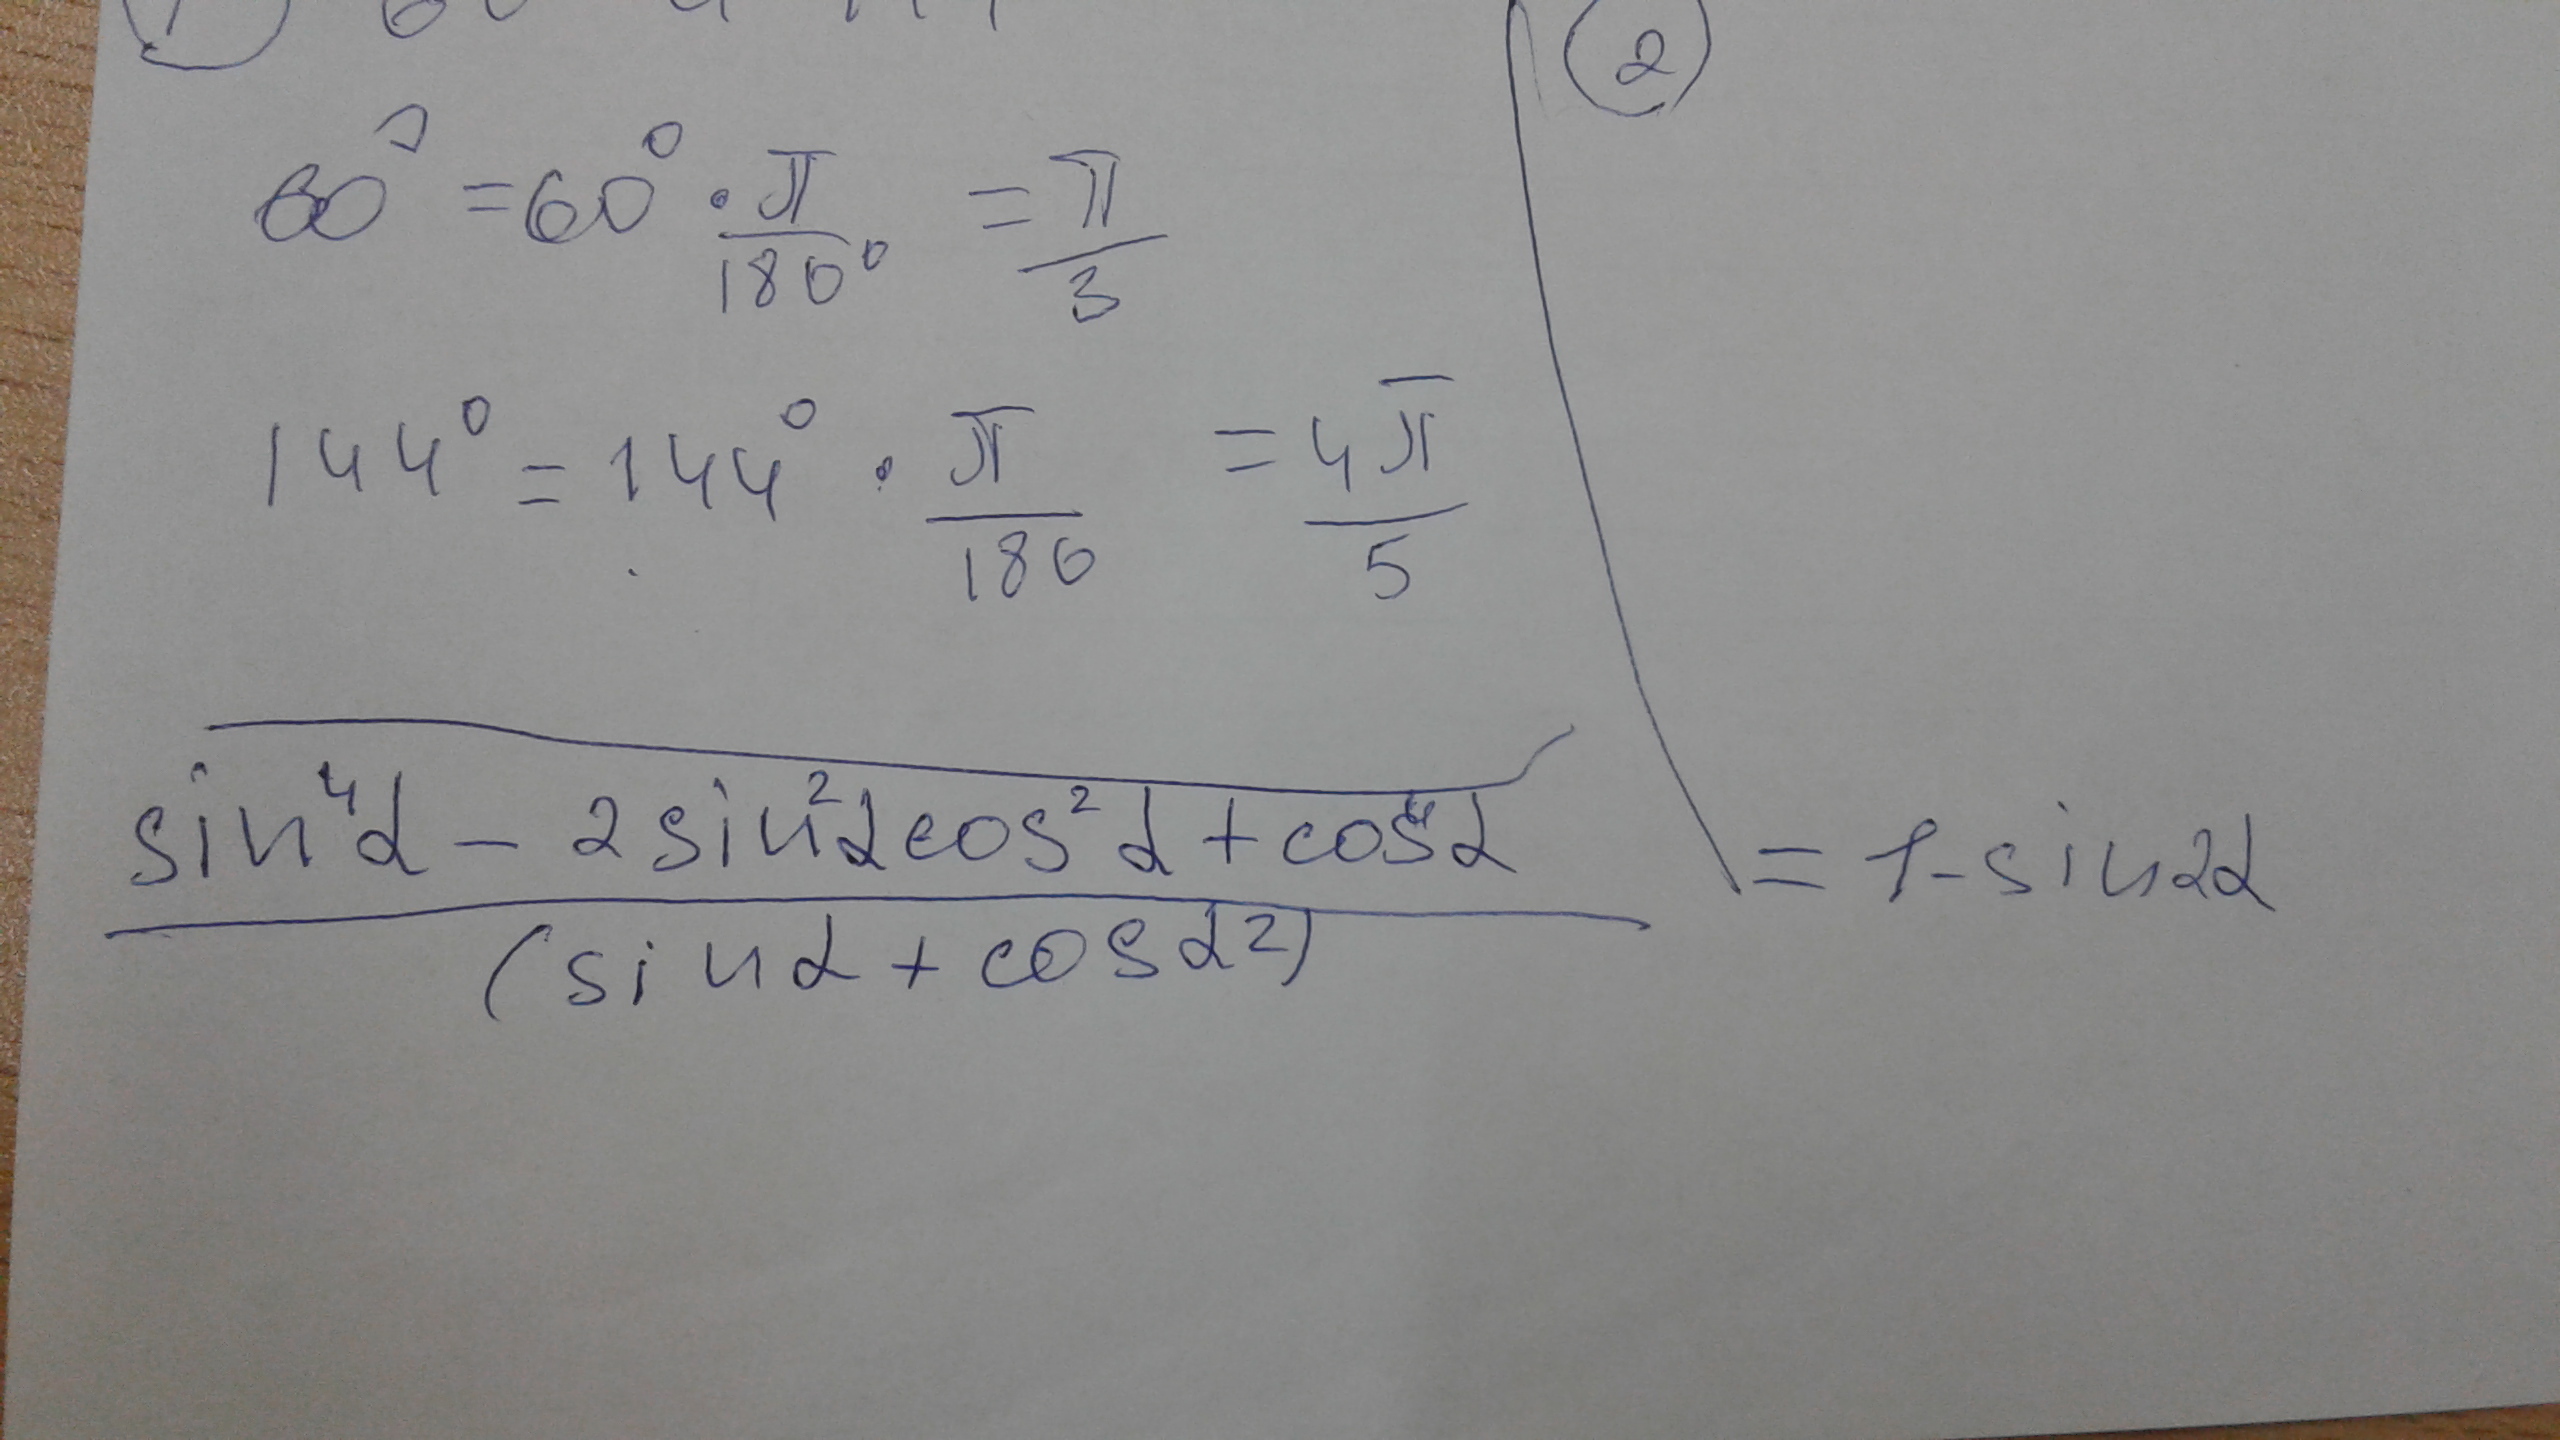 1
2
60° = 60° · π/180° = π/3
144° = 144° · π/180 = 4π/5
sin⁴α - 2sin²αcos²α + cos⁴α / (sinα + cosα²) = 1 - sin2α